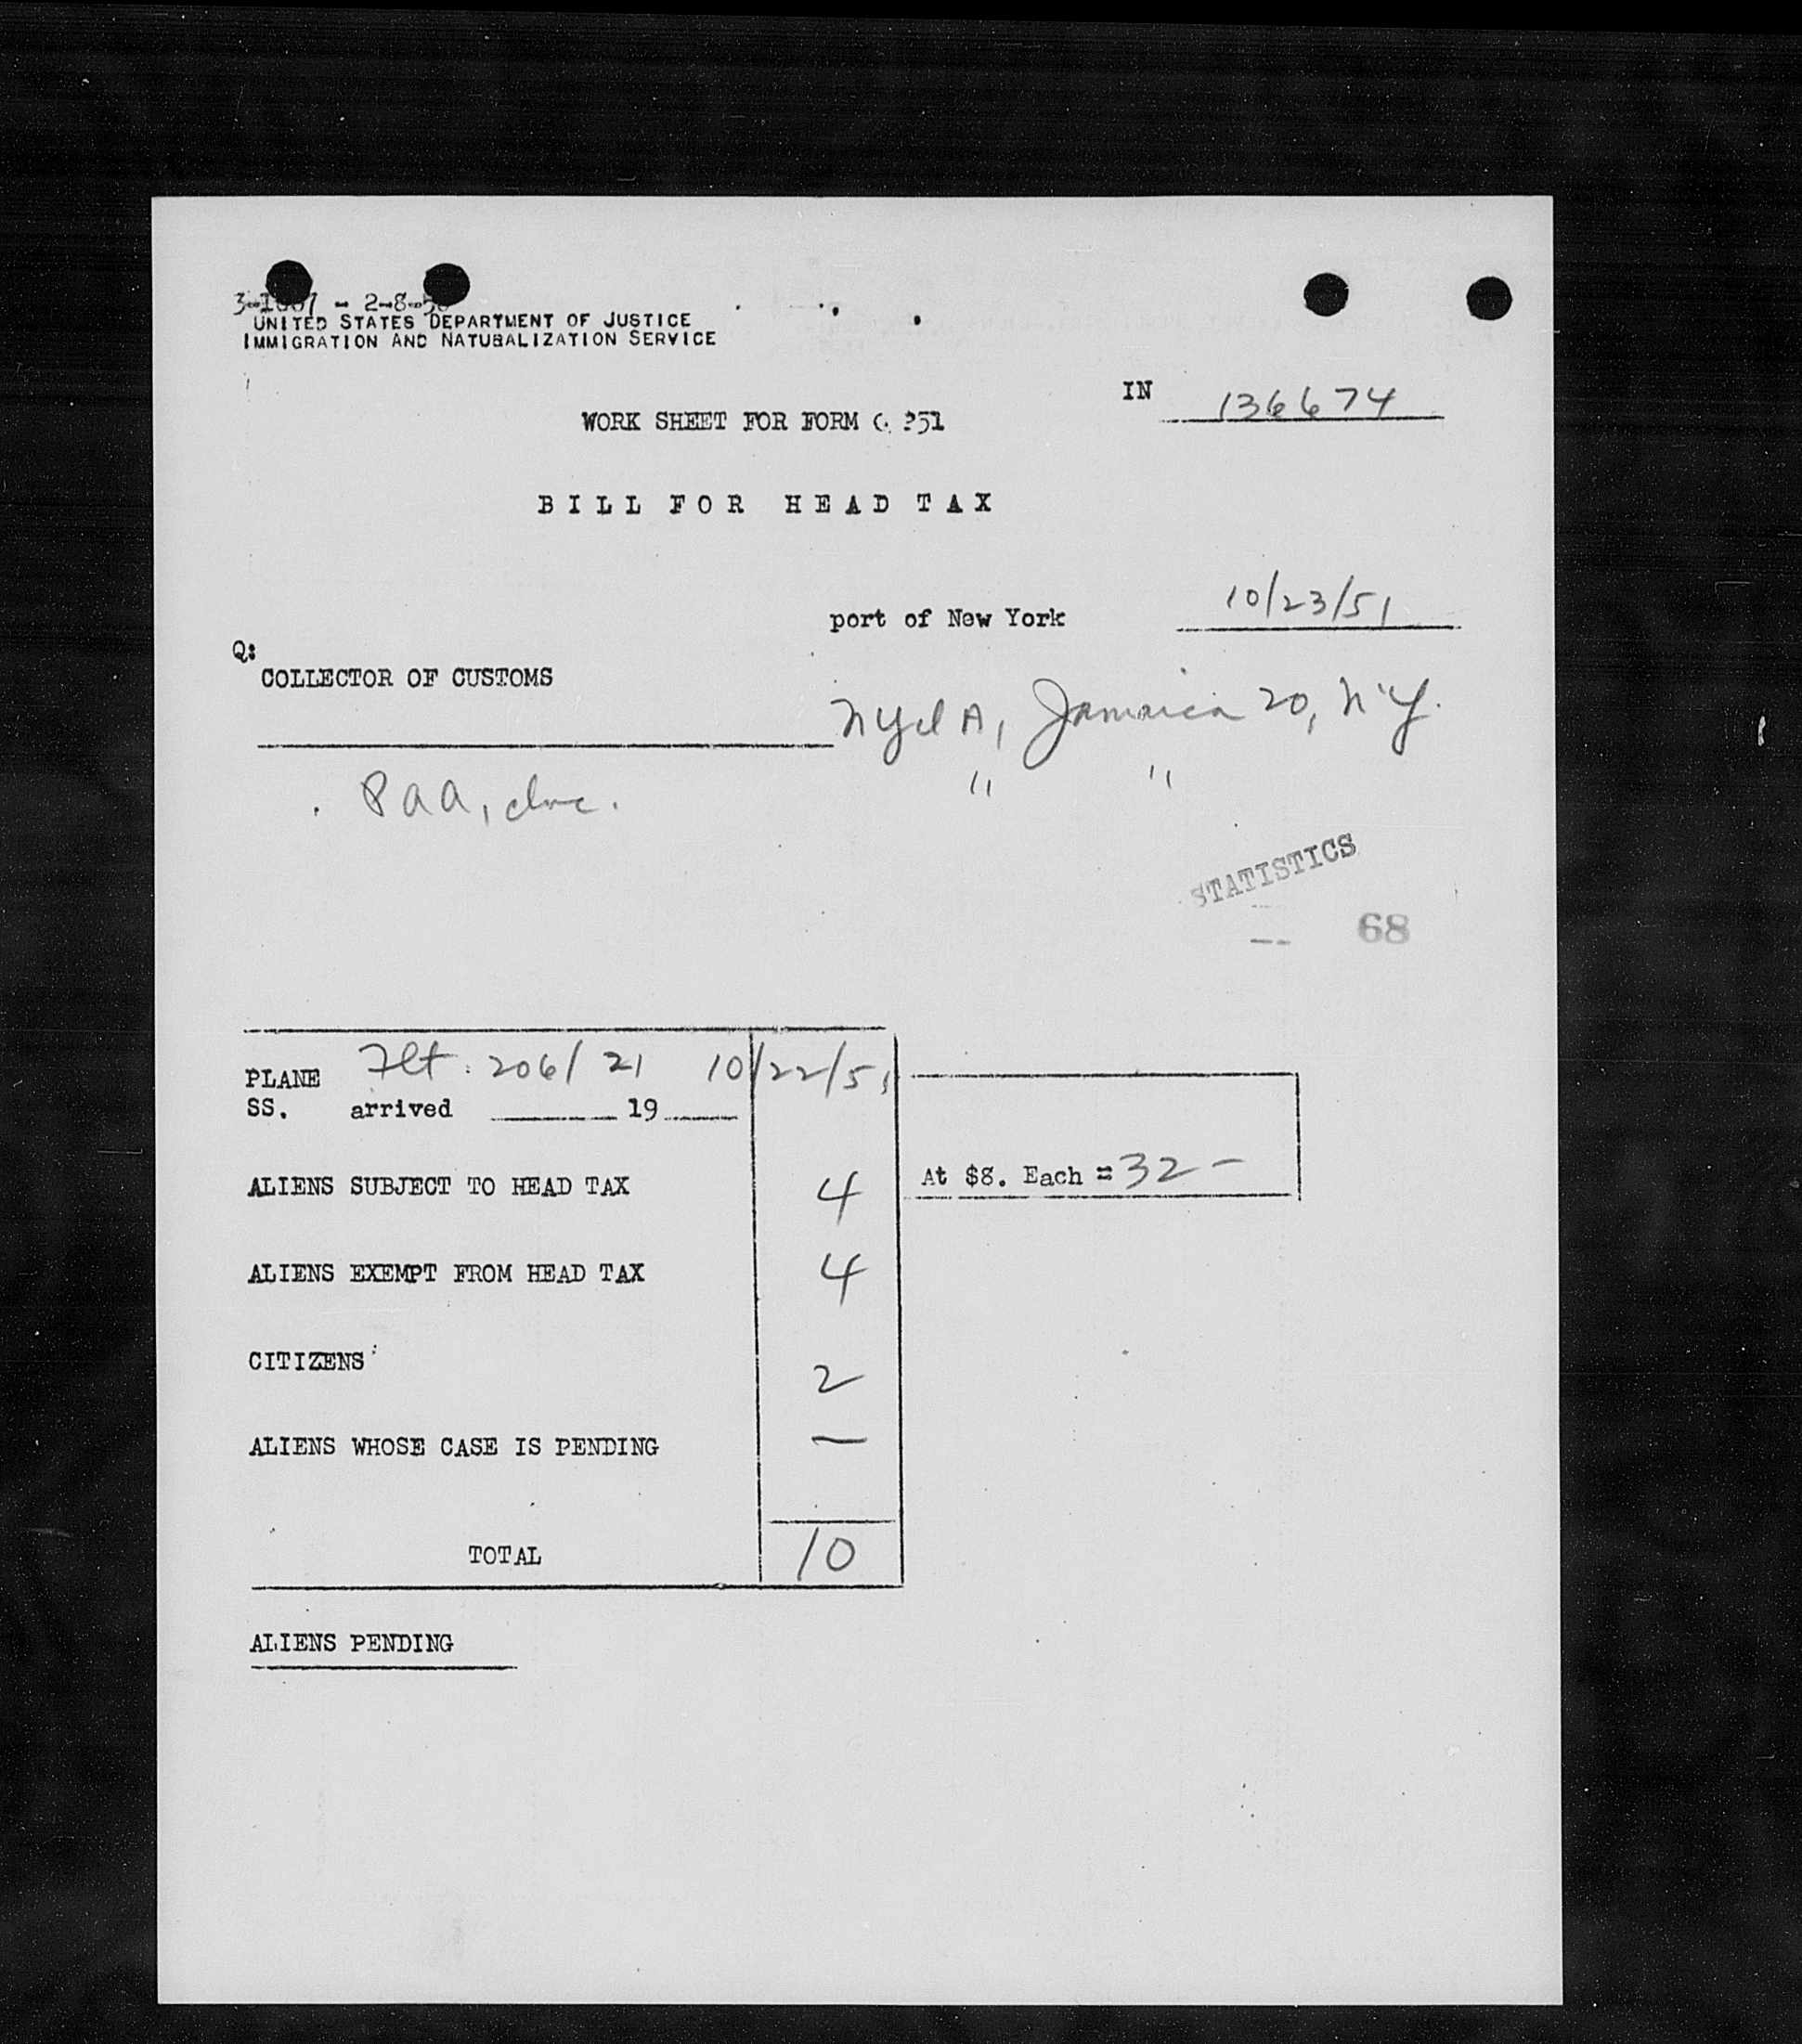 - 2-8-50
UNITED STATES DEPARTMENT OF JUSTICE
IMMIGRATION AND NATURALIZATION SERVICE
IN 136674
WORK SHEET FOR FORM
BILL FOR HEAD TAX
port of New York 10/23/51
Q:
COLLECTOR OF CUSTOMS
Jamaica 20, N.Y.
PAA, Inc. " "
STATISTICS
68
Flt. 206/21 10/22/51
PLANE
SS. arrived 19
At $8. Each = 32 -
ALIENS SUBJECT TO HEAD TAX 4
ALIENS EXEMPT FROM HEAD TAX 4
CITIZENS 2
ALIENS WHOSE CASE IS PENDING —
TOTAL 10
ALIENS PENDING